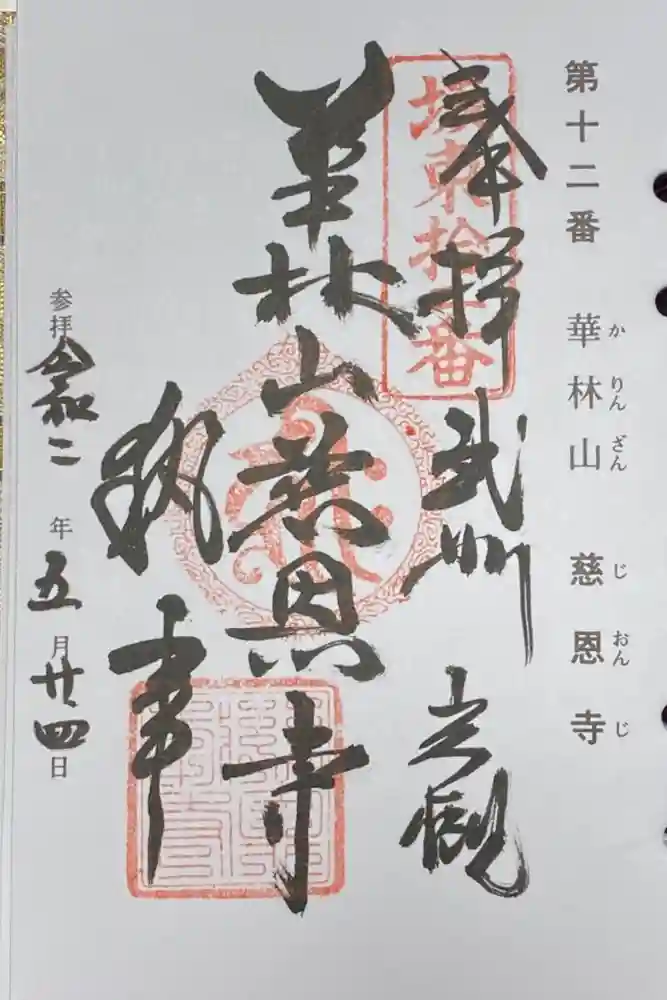 第十二番 華林山 慈恩寺
か りん ざん じ おん じ
奉拝 武州 岩槻
坂東拾二番
華林山慈恩寺
執事
参拝 令和二年五月廿四日